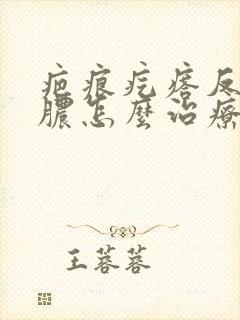 疤痕疙瘩反
膿怎麼治療
王蓉蓉